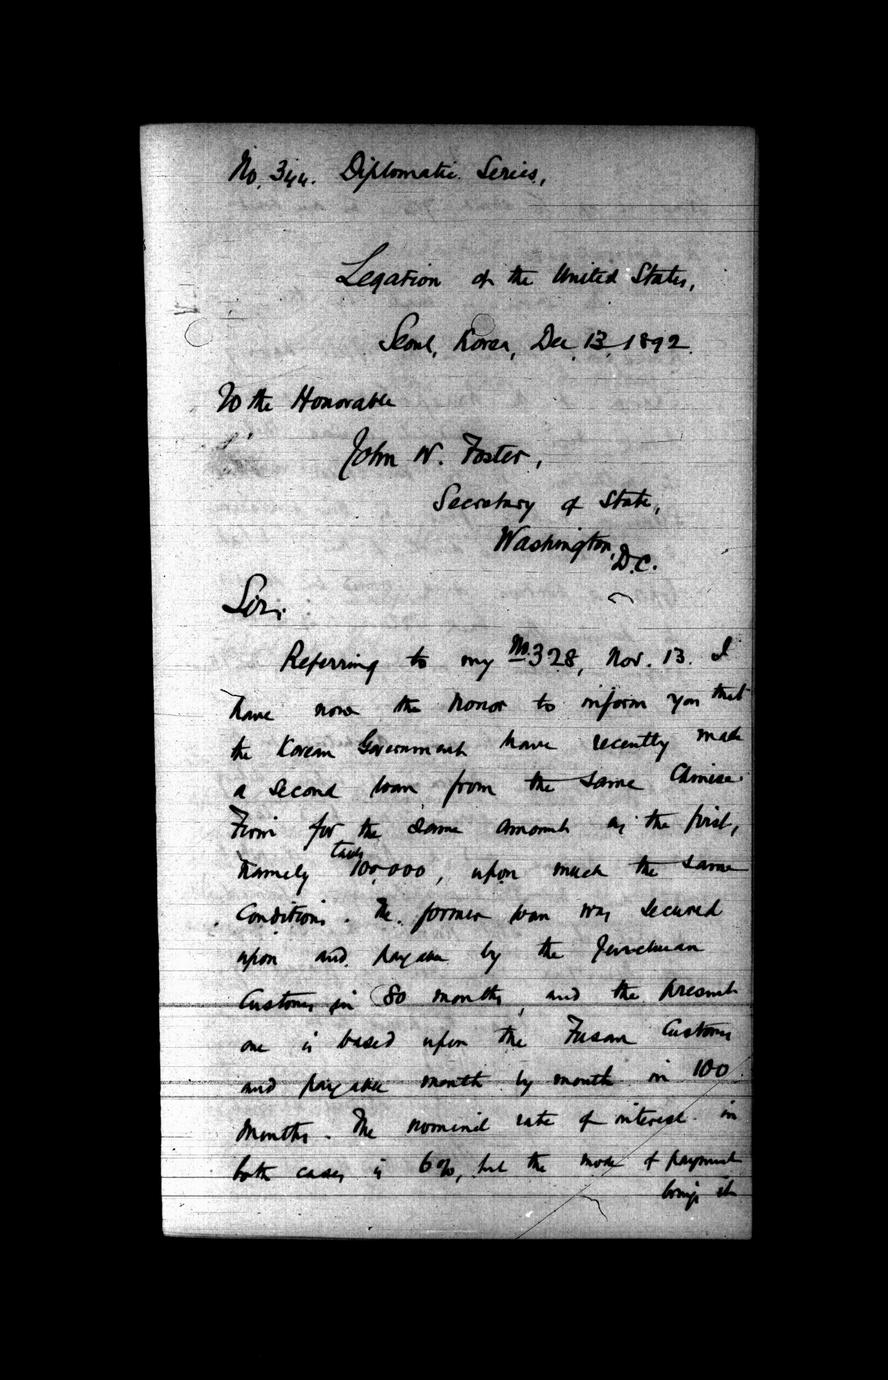 No. 344. Diplomatic Series.
Legation of the United States,
Seoul, Korea, Dec. 13, 1892.
To the Honorable
John W. Foster,
Secretary of State,
Washington, D.C.
Sir:
Referring to my No. 328, Nov. 13. I
have now the honor to inform you that
the Korean Government have recently made
a second loan from the same Chinese
Firm for the same amount as the first,
namely taels 100,000, upon much the same
Conditions. The former loan was secured
upon and payable by the Jenchuan
Customs in 80 months, and the present
one is based upon the Fusan Customs
and payable month by month in 100
months. The nominal rate of interest in
both cases is 6%, but the mode of payment
brings it